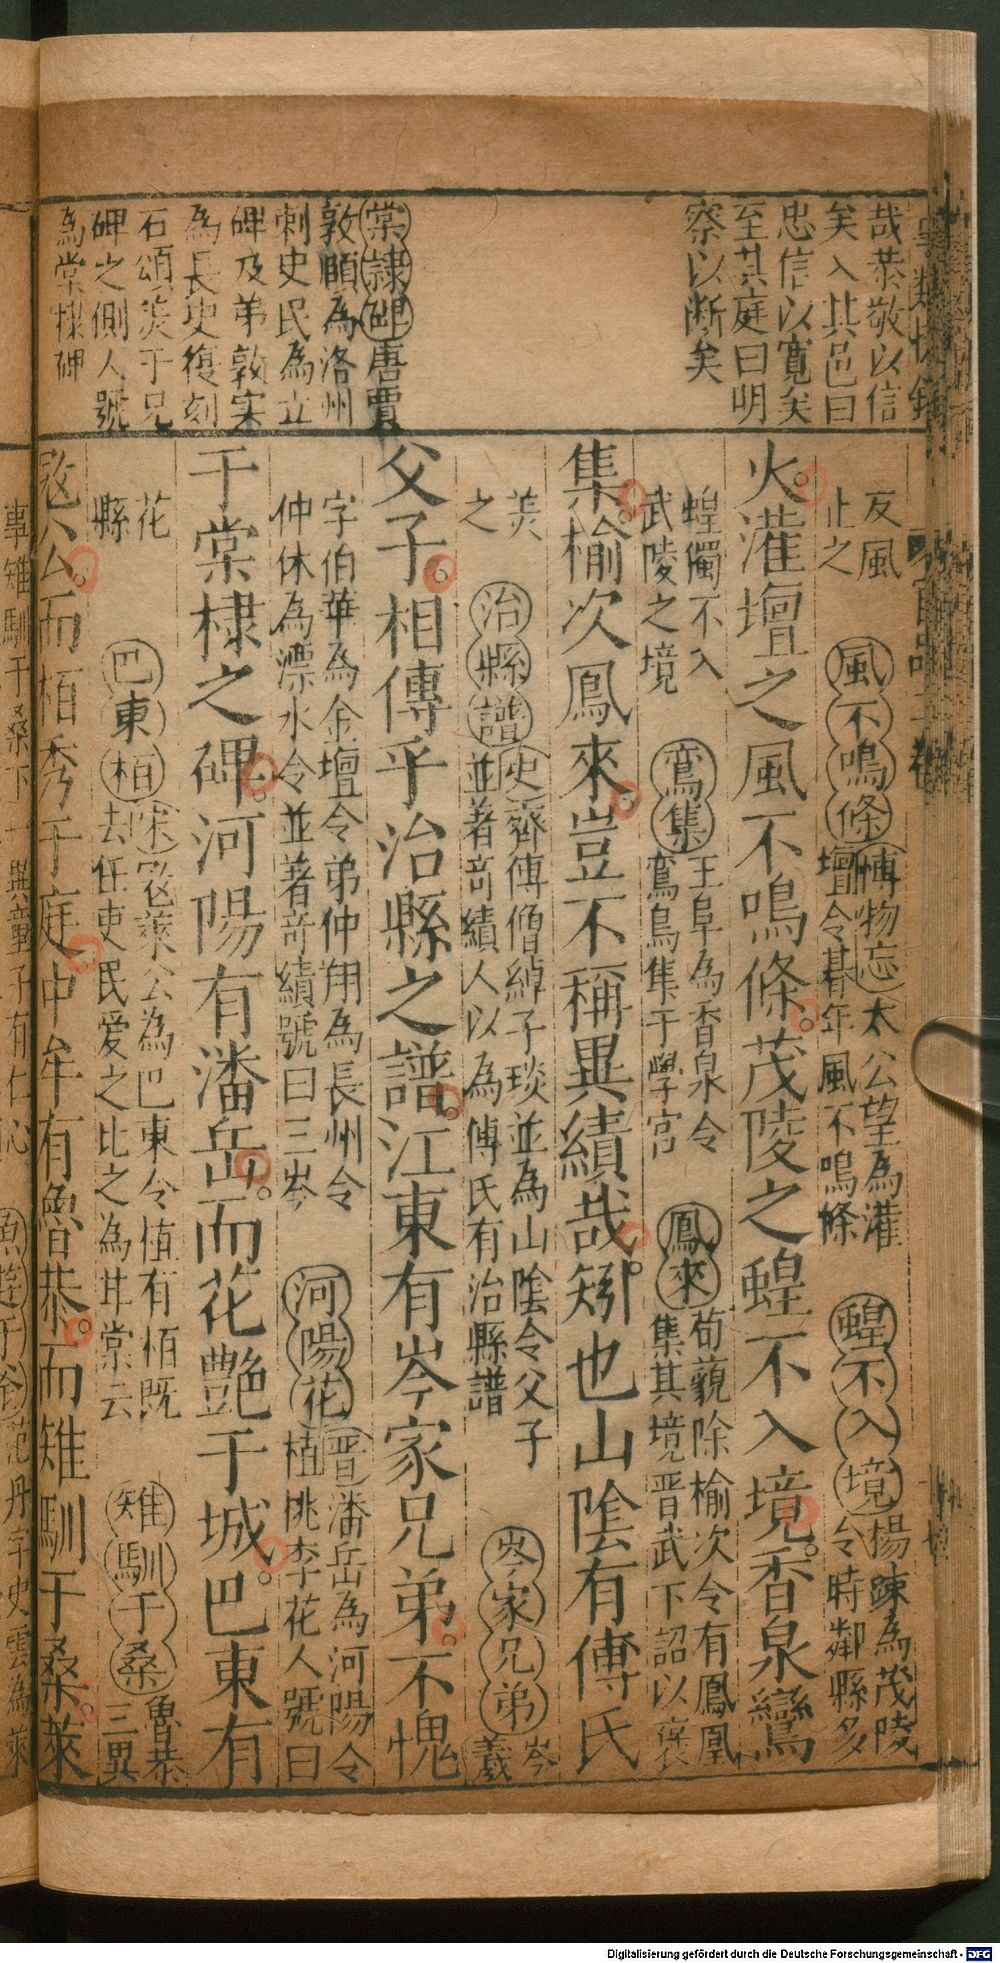 哉恭敬以信
矣入其邑曰
忠信以寬矣
至其庭曰明
察以断矣
棠隷碑唐賈
敦頤為洛州
刺史民為立
碑及弟敦宲
為長史復刻
石頌羙于兄
碑之側人號
為棠棣碑
反風
止之
風不鳴條
博物忘太公望為灌
壇令朞年風不鳴條
蝗不入境
楊踈為茂陵
令時鄰縣多
火灌壇之風不鳴條茂陵之蝗不入境香泉鸞
蝗獨不入
武陵之境
鸞集
王阜為香泉令
鸞鳥集于學宫
鳳來
荀藐除榆次令有鳳凰
集其境晋武下詔以褒
集榆次鳳來豈不稱異績哉矧也山陰有傅氏
羙
之
治縣譜
史齊傅僧綽子琰並為山陰令父子
並著竒績人以為傅氏有治縣譜
岑家兄弟
岑
羲
父子相傳乎治縣之譜江東有岑家兄弟不愧
字伯華為金壇令弟仲翔為長州令
仲休為漂水令並著竒績號曰三岑
河陽花
晋潘岳為河陽令
植桃李花人號曰
于棠棣之碑河陽有潘岳而花艷于城巴東有
花
縣
巴東栢
宋宼萊公為巴東令植有栢既
去任吏民爱之比之為甘棠云
雉馴于桑
魯恭
三異
宼公而栢秀于庭中牟有魯恭而雉馴于桑萊
事雉馴于桑下一與童子有仁心
范丹字史雲為萊
Digitalisierung gefördert durch die Deutsche Forschungsgemeinschaft - DFG